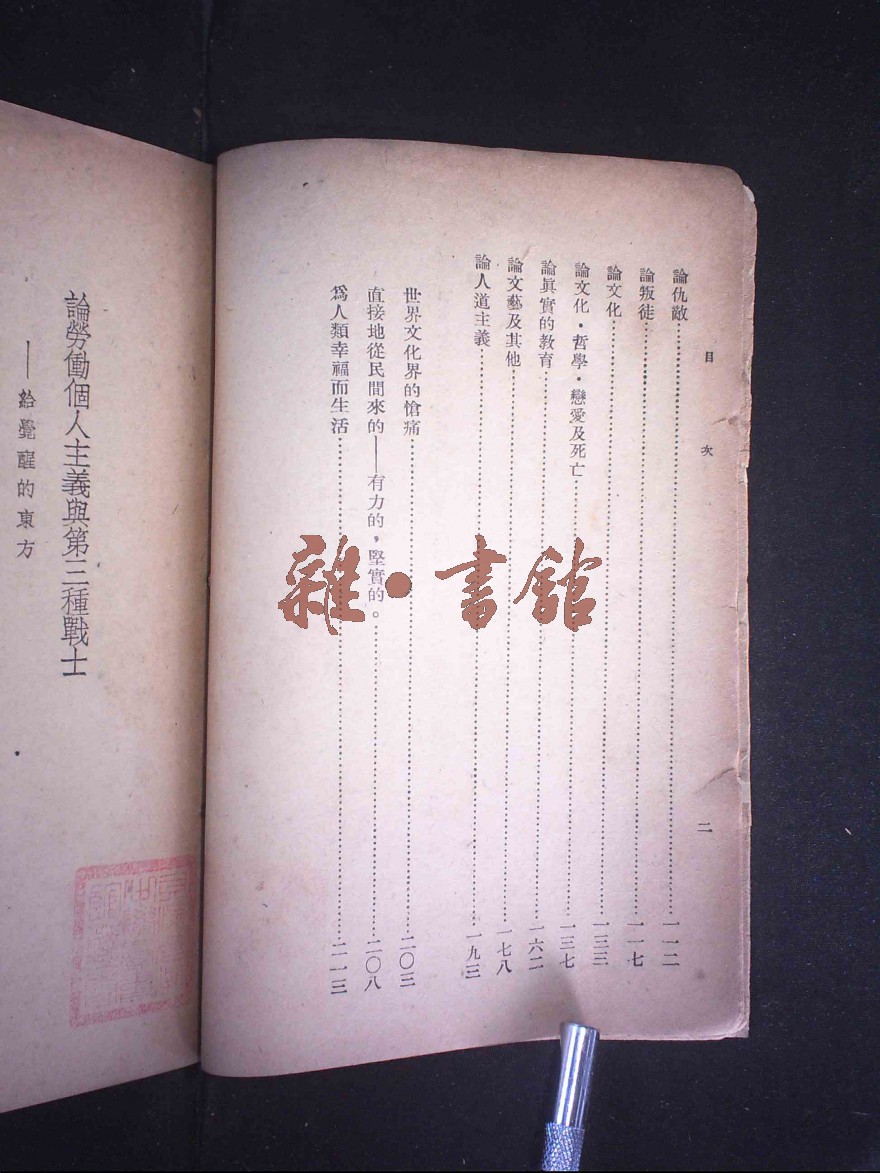 目次
二
論仇敵…………一一二
論叛徒…………一一七
論文化…………一三三
論文化・哲學・戀愛及死亡…………一三七
論眞實的教育…………一六二
論文藝及其他…………一七八
論人道主義…………一九三
世界文化界的愴痛…………二〇三
直接地從民間來的——有力的，堅實的。…………二〇八
爲人類幸福而生活…………二一三
論勞働個人主義與第三種戰士
——給覺醒的東方
雜・書館